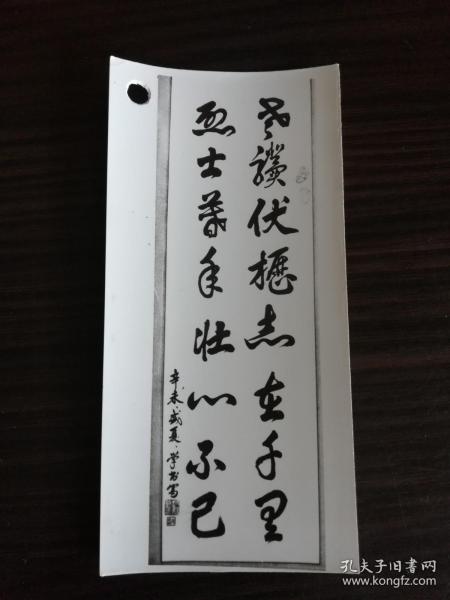 老骥伏枥志在千里
烈士暮年壮心不已
辛未盛夏学书写
孔夫子旧书网
www.kongfz.com